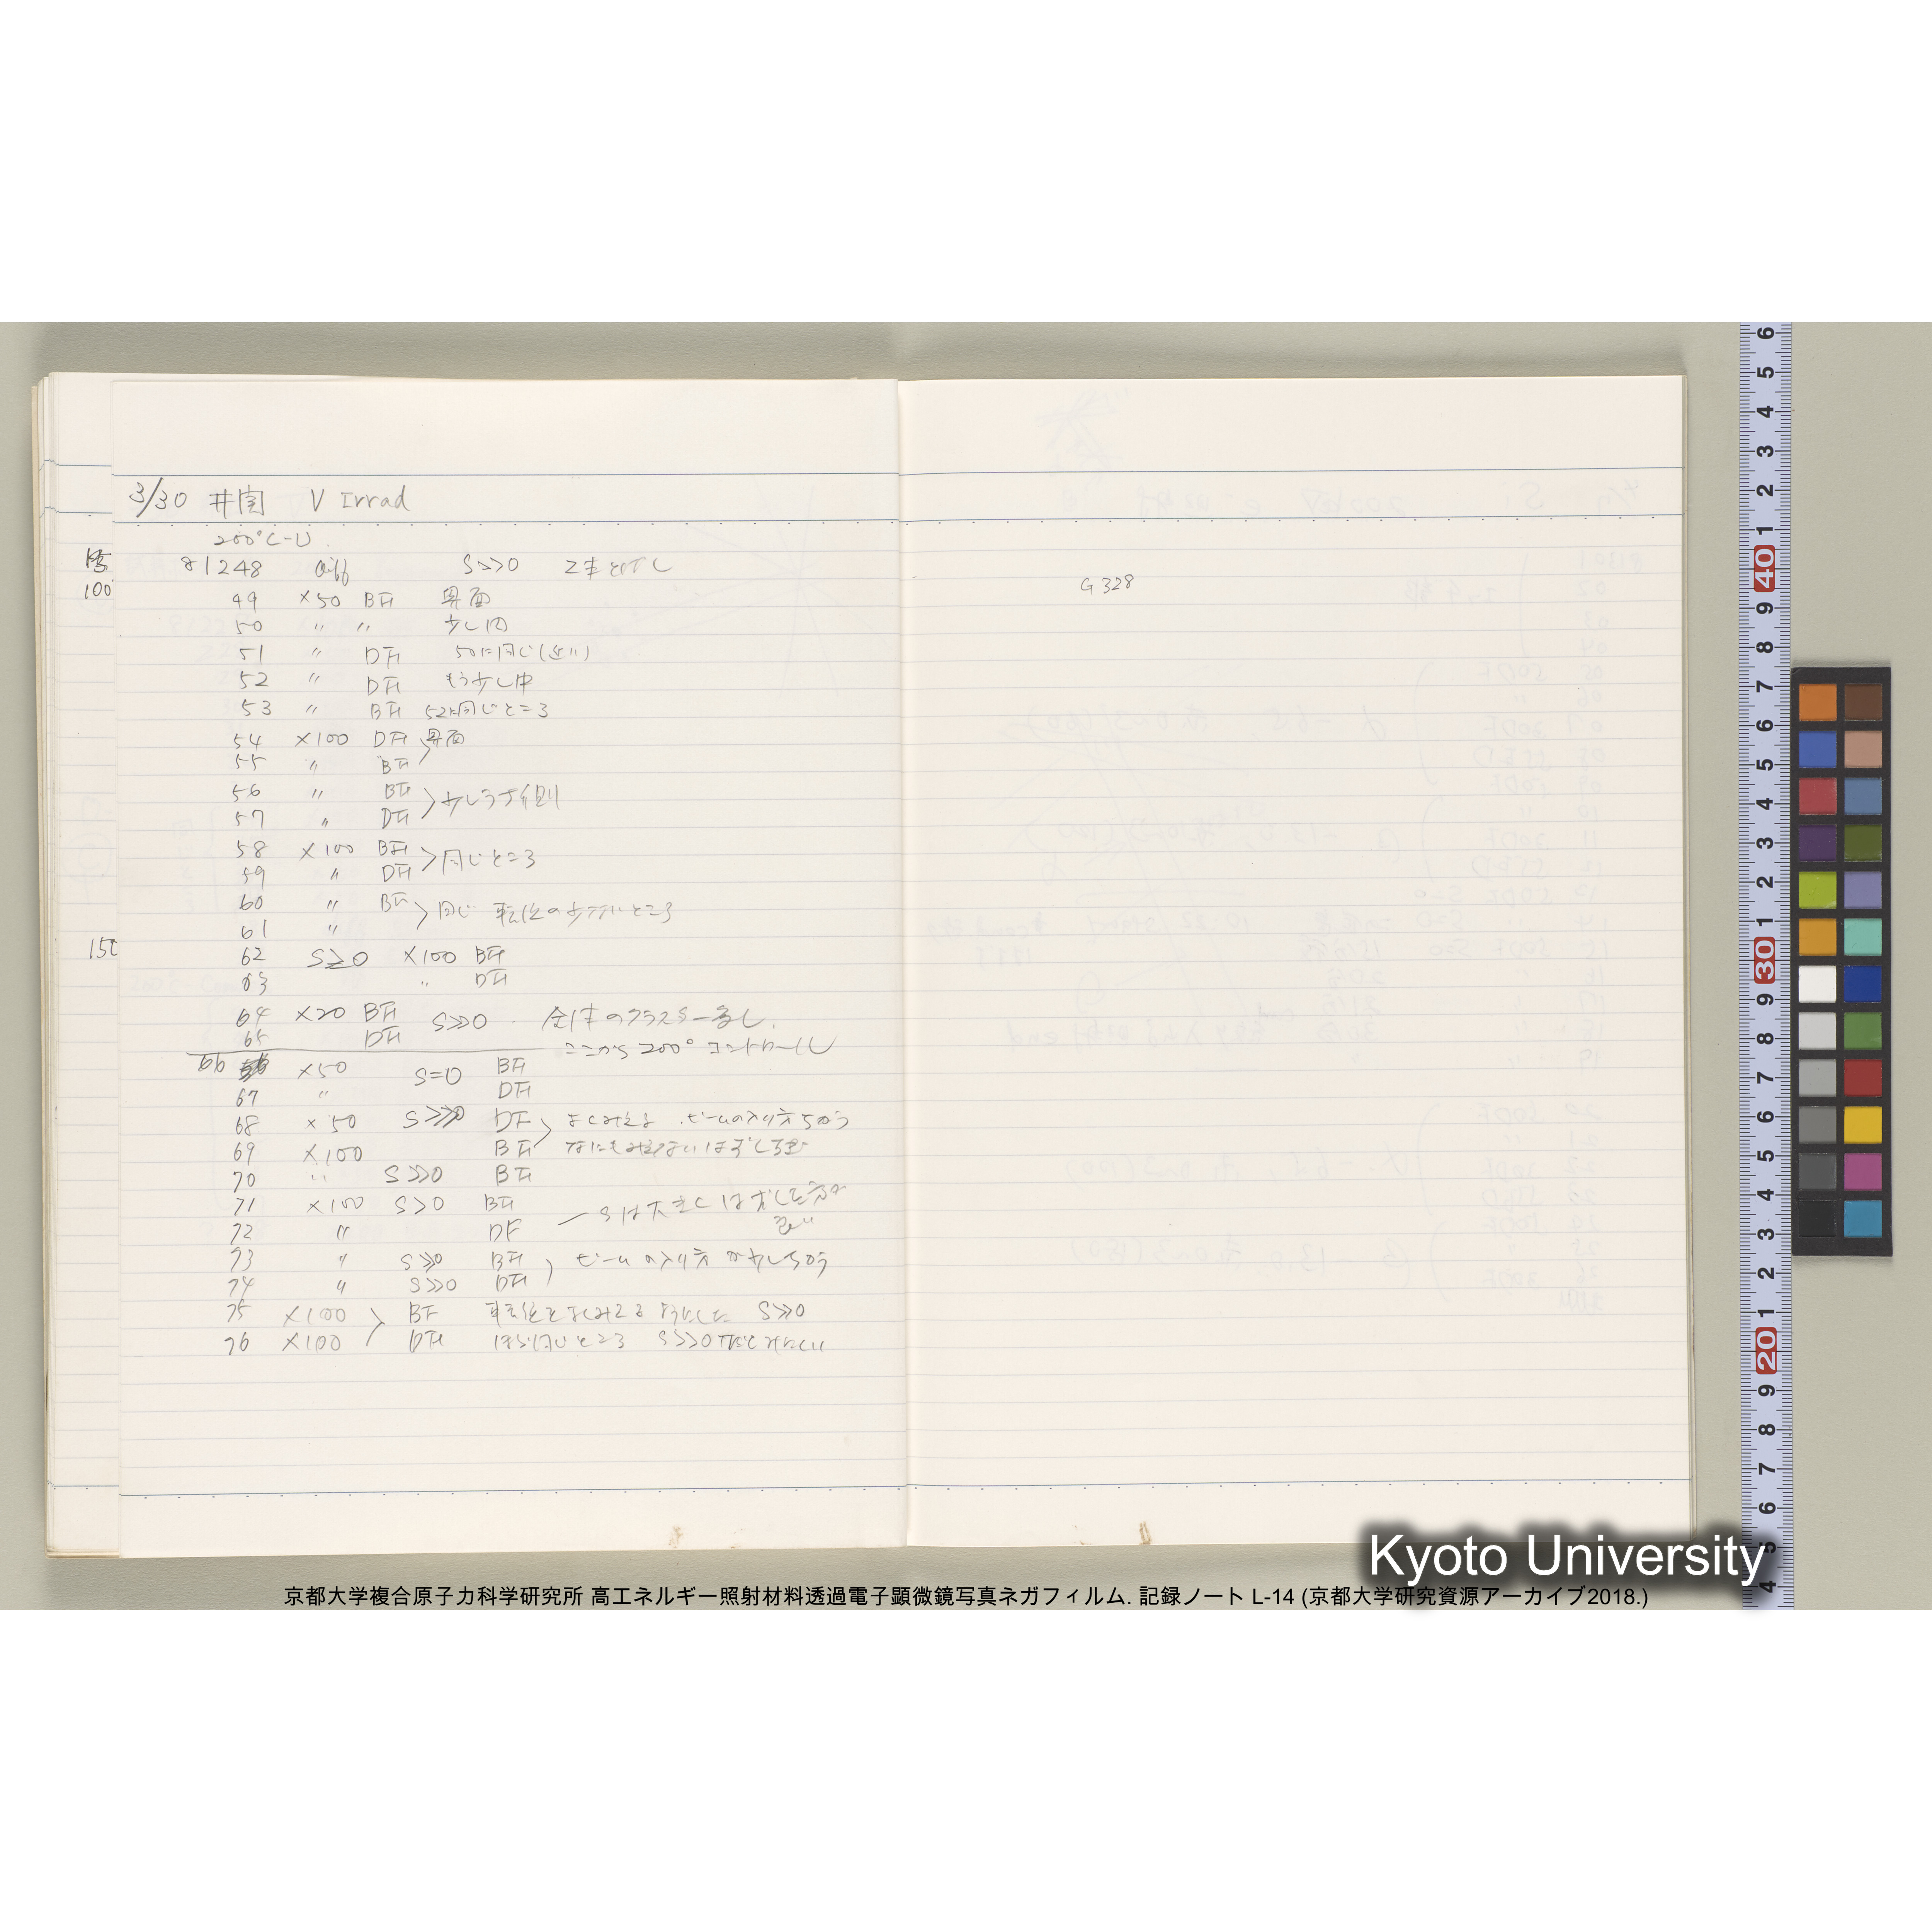 3/30 井関 V Irrad
200℃-U
15 81248 Diff S>>0
100 49 ×50 BF 界面
50 〃 〃 少し内
51 〃 DF 50に同じ(近い)
52 〃 DF もう少し中
53 〃 BF 52に同じところ
54 ×100 DF 界面
55 〃 BF
56 〃 BF 少しうす側
57 〃 DF
58 ×100 BF 同じところ
59 〃 DF
60 〃 BF 同じ 転位の少ないところ
61 〃
150 62 S≥0 ×100 BF
63 〃 DF
64 ×20 BF S>>0 全体のクラスター多し.
65 DF
ここから200°コントロール
66 ×50 S=0 BF
67 〃 DF
68 ×50 S>>>0 DF よくみえる .ビームの入り方ちがう
69 ×100 BF
70 〃 S>>0 BF
71 ×100 S>0 BF
72 〃 DF Sは大きくはずした方が
73 〃 S≫0 BF ビームの入り方が少しちがう
74 〃 S>>0 DF
75 ×100 BF 転位をよくみえるようにした S≫0
76 ×100 DF ほぼ同じところ S>>0
G328
Kyoto University
京都大学複合原子力科学研究所 高エネルギー照射材料透過電子顕微鏡写真ネガフィルム. 記録ノート L-14 (京都大学研究資源アーカイブ2018.)